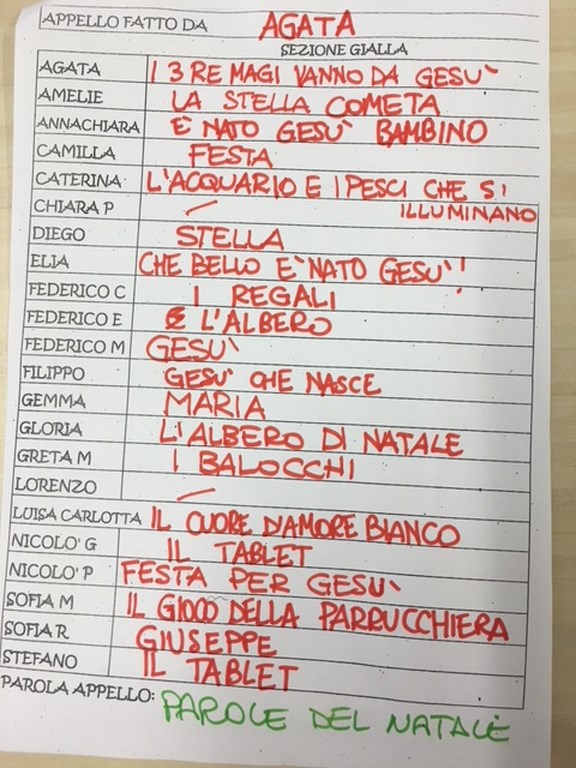 APPELLO FATTO DA AGATA
SEZIONE GIALLA
AGATA I 3 RE MAGI VANNO DA GESU'
AMELIE LA STELLA COMETA
ANNACHIARA E' NATO GESU' BAMBINO
CAMILLA FESTA
CATERINA L'ACQUARIO E I PESCI CHE SI
CHIARA P — ILLUMINANO
DIEGO STELLA
ELIA CHE BELLO E' NATO GESU'!
FEDERICO C I REGALI
FEDERICO E L'ALBERO
FEDERICO M GESU'
FILIPPO GESU' CHE NASCE
GEMMA MARIA
GLORIA L'ALBERO DI NATALE
GRETA M I BALOCCHI
LORENZO —
LUISA CARLOTTA IL CUORE D'AMORE BIANCO
NICOLO' G IL TABLET
NICOLO' P FESTA PER GESU'
SOFIA M IL GIOCO DELLA PARRUCCHIERA
SOFIA R GIUSEPPE
STEFANO IL TABLET
PAROLA APPELLO: PAROLE DEL NATALE